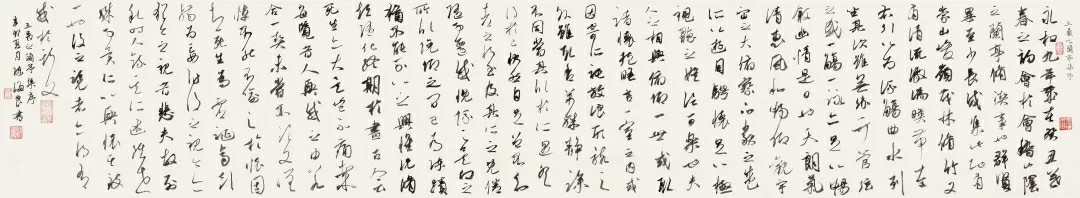 王羲之蘭亭集序
永和九年歲在癸丑暮
春之初會於會稽山陰
之蘭亭脩禊事也群賢
畢至少長咸集此地有
崇山峻領茂林脩竹又
有清流激湍暎帶左
右引以為流觴曲水列
坐其次雖無絲竹管弦
之盛一觴一詠亦足以暢
敘幽情是日也天朗氣
清惠風和暢仰觀宇
宙之大俯察品類之盛
所以遊目騁懷足以極
視聽之娛信可樂也夫
人之相與俯仰一世或取
諸懷抱晤言一室之內或
因寄所託放浪形骸之
外雖趣舍萬殊靜躁
不同當其欣於所遇暫
得於己快然自足不知
老之將至及其所之既倦
情隨事遷感慨係之矣向之
所欣俛仰之間已為陳跡
猶不能不以之興懷況脩
短隨化終期於盡古人云
死生亦大矣豈不痛哉
每覽昔人興感之由若
合一契未嘗不臨文嗟
悼不能喻之於懷固
知一死生為虛誕齊彭
殤為妄作後之視今亦
猶今之視昔悲夫故列
敘時人錄其所述雖世
殊事異所以興懷其致
一也後之覽者亦將有
感於斯文
王羲之蘭亭集序
辛卯夏月沈海良書